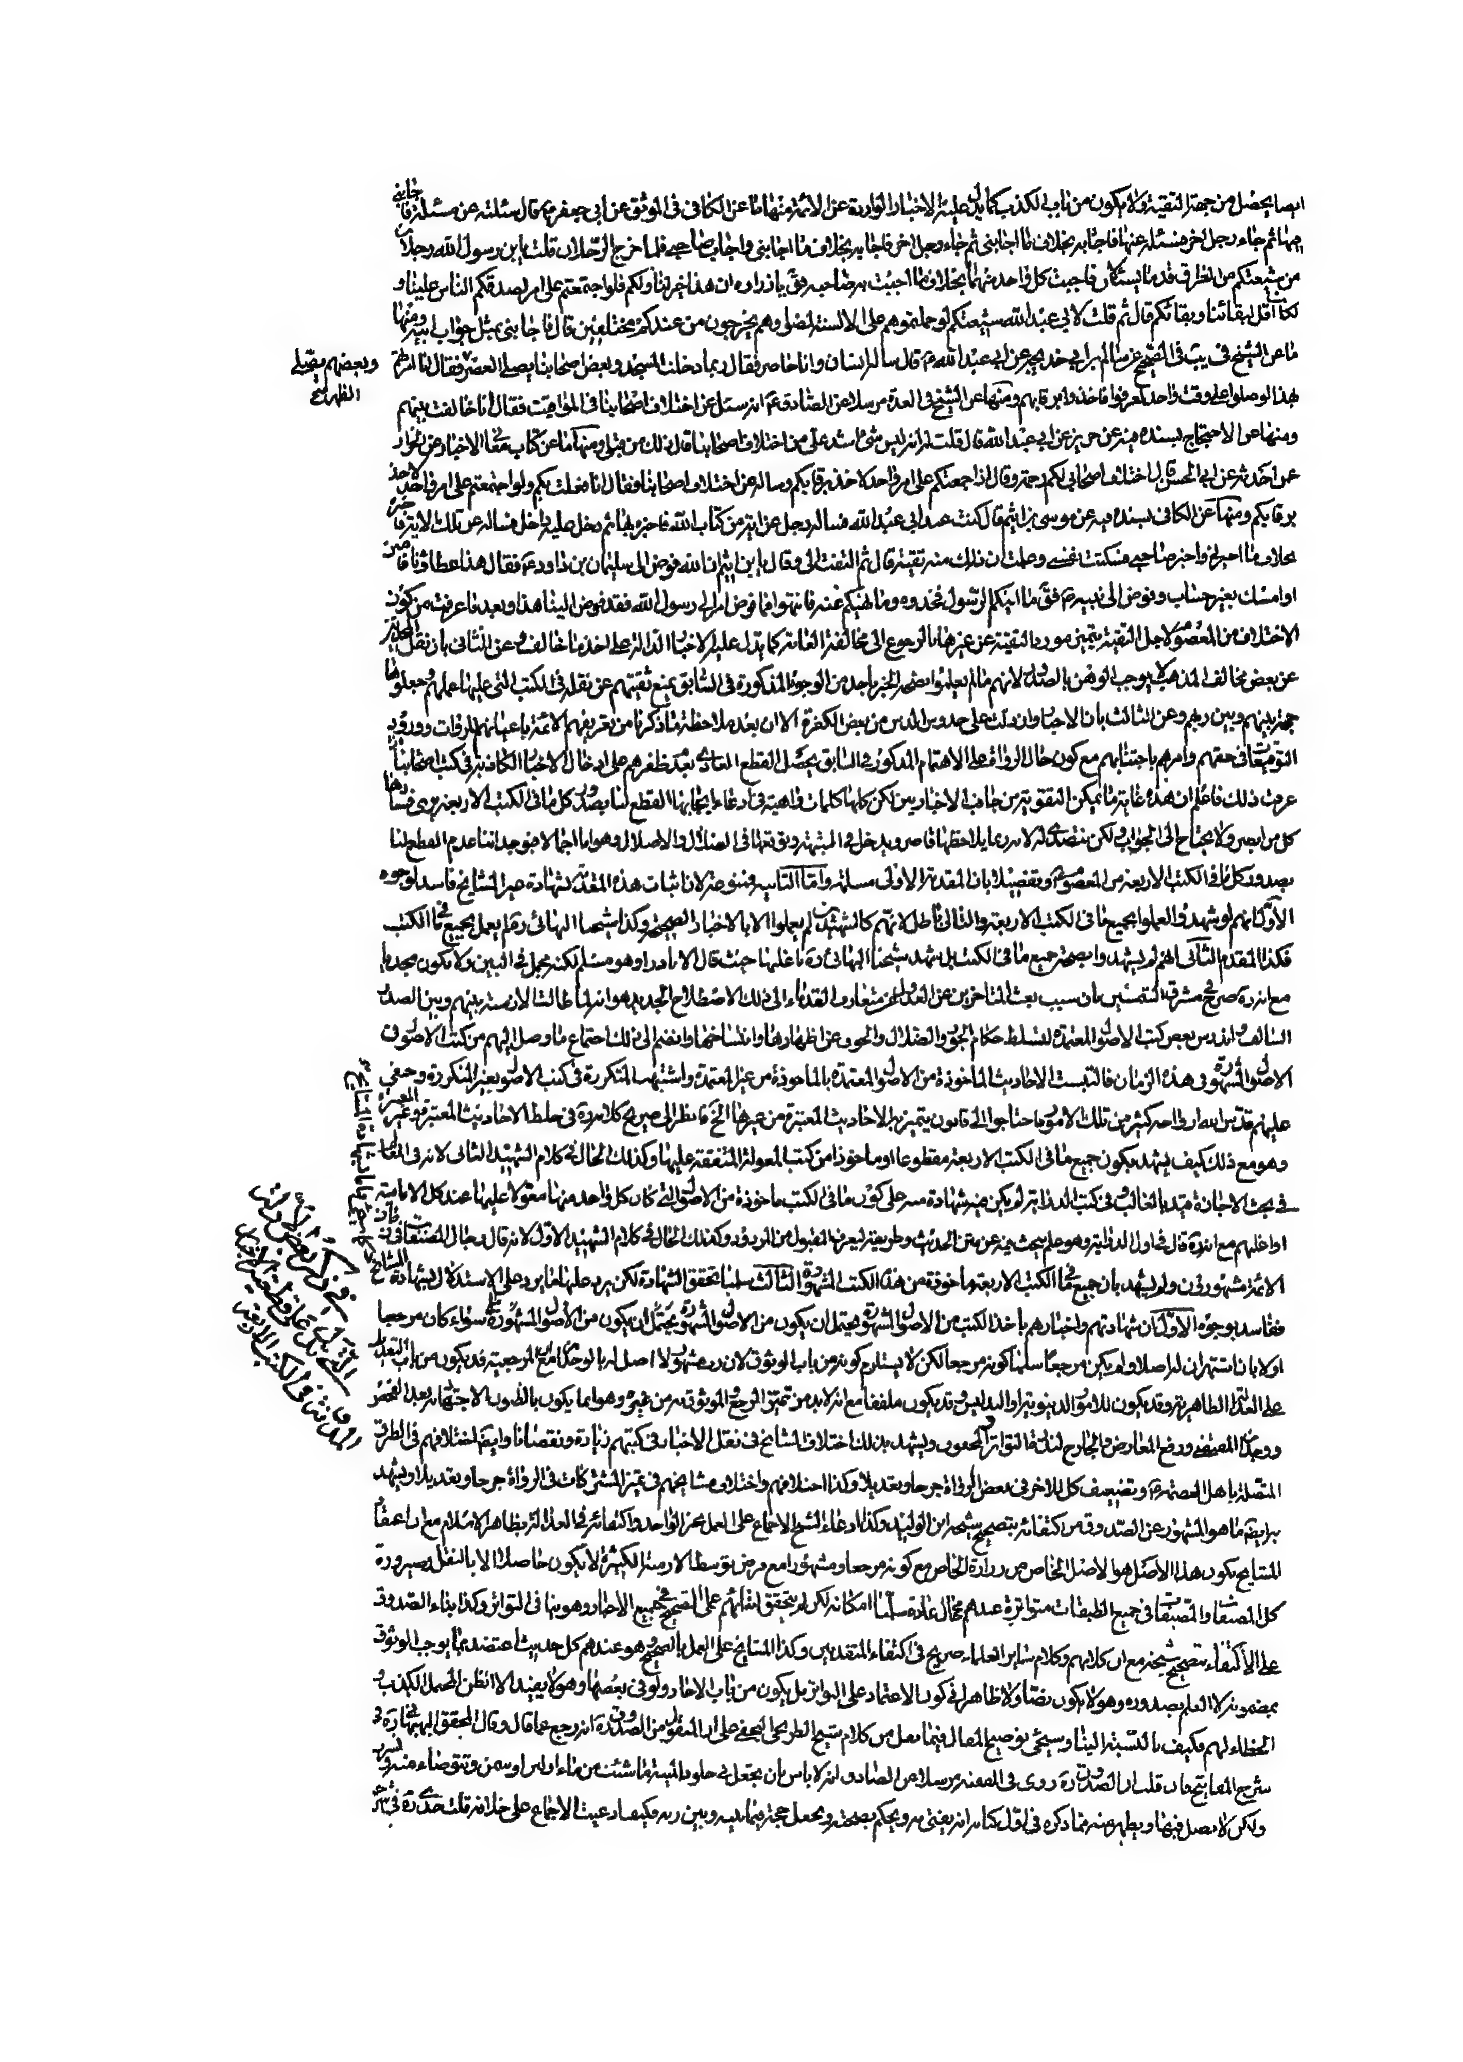 ايضا يحصل من جهة التقية ولا يكون من باب الكذب كما يدل عليه الاخبار الواردة عن الائمة منها ما عن الكافي في الموثق عن ابي جعفر ع قال سئلته عن مسئلة فاجابني
فيها ثم جاء رجل اخر فسئله عنها فاجابه بخلاف ما اجابني ثم جاء رجل اخر فاجابه بخلاف ما اجابني واجاب صاحبي فلما خرج الرجلان قلت يابن رسول الله رجلان
من شيعتكم من العراق قدما يسئلان فاجبت كل واحد منهما بخلاف ما اجبت به صاحبه فق يا زرارة ان هذا خير لنا ولكم فلو اجتمعتم على امر لصدقكم الناس علينا و
لكان اقل لبقائنا وبقائكم قال ثم قلت لابي عبد الله شيعتكم لو حملتموهم على الالسنة لمضوا وهم يخرجون من عندكم مختلفين قال فاجابني بمثل جواب ابيه ومنها
ما عن الشيخ في يب في الصحيح عن سالم ابي خديجة عن ابي عبد الله ع قال ساله انسان وانا حاضر فقال ربما دخلت المسجد وبعض اصحابنا يصلي العصر فقال انا امرتهم
وبعضهم يصلي
الظهر
بهذا لو صلوا على وقت واحد لعرفوا فاخذوا برقابهم ومنها عن الشيخ في العدة مرسلا عن الصادق ع انه سئل عن اختلاف اصحابنا في المواقيت فقال انا خالفت بينهم
ومنها عن الاحتجاج بسنده فيه عن حريز عن ابي عبد الله قال قلت له انه ليس شئ اشد علي من اختلاف اصحابنا قال ذلك من قبلي ومنها ما عن كتاب معاني الاخبار عن
عمن حدثه عن ابي الحسن قال اختلاف اصحابي لكم رحمة وقال اذا جمعتكم على امر واحد لاخذ برقابكم وساله عن اختلاف اصحابنا فقال انا فعلت بكم ولو اجتمعتم على امر واحد لاخذ
برقابكم ومنها عن الكافي بسنده فيه عن موسى بن اشيم قال كنت عند ابي عبد الله فساله رجل عن اية من كتاب الله فاخبره بها ثم دخل عليه داخل فساله عن تلك الاية فاخبره
بخلاف ما اخبرني واخبر صاحبي فسكنت نفسي وعلمت ان ذلك منه تقية قال ثم التفت الي وقال يابن اشيم ان الله فوض الى سليمان بن داود ع فقال هذا عطاؤنا فامنن
او امسك بغير حساب وفوض الى نبيه ص فق ما اتيكم الرسول فخذوه وما نهيكم عنه فانتهوا فما فوض الى رسول الله فقد فوض الينا هذا وبعد ما عرفت من كون
الاختلاف من المعصوم لاجل التقية يتميز مورد التقية عن غيرها بالرجوع الى مخالفة العامة كما يدل عليه الاخبار الدالة على اخذ ما خالف وعن الثاني بان نقل
عن بعض مخالف المذهب لا يوجب الوهن بالصدور لانهم ما لم يعلموا بصحة الخبر باحد من الوجوه المذكورة في السابق يمنع تقيتهم عن نقله في الكتب التي عليها عملهم وجعلوها
حجة بينهم وبين ربهم وعن الثالث بان الاخبار وان دلت على حدوث الدس من بعض الكفرة الا ان بعد ملاحظة ما ذكرنا من تعريفهم الائمة باعيانهم للروات وورود
التوقيعات في حقهم وامرهم باجتنابهم مع كون حال الرواة على الاهتمام المذكور في السابق يحصل القطع العادي بعدم ظفرهم على ادخال الاخبار الكاذبة في كتب اصحابنا
عرفت ذلك فاعلم ان هذه غاية ما يمكن التقوية من جانب الاخباريين لكن كلها كلمات واهية في ادعاء ايجابها القطع لنا بصدور كل ما في الكتب الاربعة
كل من ابصر ولا يحتاج الى الجواب ولكن نتصدى له لانه ربما يلاحظها قاصر ويدخل في الشبهة ويوقعها في الضلال والاضلال وهو اما اجمالا فبوجداننا عدم القطع لنا
بصدور كل ما في الكتب الاربعة من المعصوم وتفصيلا بان المقدمة الاولى مسلمة واما الثانية فممنوعة لان اثبات هذه المقدمة بشهادة المشايخ فاسد لوجوه
الاول انهم لو شهدوا لعملوا بجميع ما في الكتب الاربعة والتالي باطل لانهم كالشهيدين لم يعملوا الا بالاخبار الصحيحة وكذا شيخنا البهائي ره لم يعمل بجميع ما في الكتب
فكذا المقدم الثاني انهم لم يشهدوا بصحة جميع ما في الكتب بل شهد شيخنا البهائي ره باغلبها حيث قال الا نادرا وهو مسلم لكنه مجمل في البين ولا يكون مجديا
مع انه ره صرح في مشرق الشمسين بان سبب بعث المتاخرين عن العدول عن متعارف القدماء الى ذلك الاصطلاح الجديد هو انه لما طالت الازمنة بينهم وبين الصدر
السالف واندرس بعض كتب الاصول المعتمدة لتسلط حكام الجور والضلال والخوف عن اظهارها وانتساخها وانضم الى ذلك اجتماع ما وصل اليهم من كتب الاصول في
الاصول المشهورة في هذه الزمان فالتبست الاحاديث الماخوذة من الاصول المعتمدة بالماخوذة من غير المعتمدة واشتبهت المتكررة في كتب الاصول بغير المتكررة وخفي
عليهم قدس الله ارواحهم كثير من تلك الامور فاحتاجوا الى قانون يتميز به الاحاديث المعتبرة من غيرها الخ فانظر الى صريح كلامه ره في خلط الاحاديث المعتبرة وغير المعتبرة
وهو مع ذلك كيف يشهد بكون جميع ما في الكتب الاربعة مقطوعا او ماخوذا من كتب المعولة المتفقة عليها وكذلك الحال في كلام الشهيد الثاني لانه في
في بحث الاجازة قيد بالغالب في كتب الدراية لم يكن فيه شهادة منه على كون ما في الكتب ماخوذة من الاصول التي كان كل واحد منها معولا عليها عند كل الامامية
او اغلبهم مع انه ره قال في اول الدراية وهو علم يبحث فيه عن متن الحديث وطريقه ليعرف المقبول من المردود وكذلك الحال في كلام الشهيد الاول لانه قال رجال المصنفات
الائمة مشهورون ولم يشهد بان جميع ما في الكتب الاربعة ماخوذة من هذه الكتب المشهورة الثالث سلمنا تحقق الشهادة لكن يرد عليها ما يرد على الاستدلال بشهادة المشايخ
ففاسد بوجوه الاول ان شهادتهم واخبارهم باخذ الكتب من الاصول المشهورة يحتمل ان يكون من الاصول المشهورة سواء كان مرجعا
اولا بان اشتهر ان له اصلا ولم يكن مرجعا سلمنا كونه مرجعا لكن لا يستلزم كونه من باب الوثوق
على العدالة الظاهرية وقد يكون للامور الدنيوية او التدليس وقد يكون ملفقا مع انه لابد من تميز المرجع الموثوق به من غيره وهو انما يكون بالظنون الاجتهادية بعد الفحص
ووجدان المقتضي ورفع المعارض والجارح لندرة التواتر والمحفوف ويشهد بذلك اختلاف المشايخ في نقل الاخبار في كتبهم زيادة ونقصانا وايضا اختلافهم في الطرق
المتصلة باهل العصمة ع وتضعيف كل للاخر في بعض الرواة جرحا وتعديلا وكذا اختلافهم واختلاف مشايخهم في تميز المشتركات في الرواة جرحا وتعديلا ويشهد
به ايضا ما هو المشهور عن الصدوق من كتفائه بتصحيح شيخه ابن الوليد وكذا ادعاء الشيخ الاجماع على العمل بخبر الواحد واكتفائه في العدالة بظاهر الاسلام مع
المشايخ بكون هذا الاصل هو لاصل الخاص من زرارة الخاص مع كونه مرجعا ومشهورا مع فرض توسط الازمنة الكثيرة لا يكون حاصلا الا بالنقل وصيرورة
كل المصنفات والمصنفات في جميع الطبقات متواترة عندهم محال عادة سلمنا امكانه لكن لم يتحقق اتفاقهم على الصحيح في جميع الاخبار
على الاكتفاء بتصحيح شيخه مع ان كلامهم وكلام سائر العلماء صريح في اكتفاء المتقدمين وكذا المشايخ على العمل بالصحيح وهو عندهم كل حديث اعتضد بما يوجب الوثوق
بمضمونه لا العلم بصدوره وهو لا يكون نصا ولا ظاهرا في كون الاعتماد على التواتر بل يكون من باب الاحاد ولو في بعضها وهو لا يفيد الا الظن المحتمل للكذب و
الخطاء لهم فكيف بالنسبة الينا وسيجئ توضيح المقال فيما نقل من كلام شيخ الطريحي النجفي على ان المنقول من الصدوق ره انه رجع عما قال وقال المحقق البهبهاني ره في
شرح المفاتيح فان قلت ان الصدوق ره روى في الفقيه مرسلا عن الصادق انه لا باس بان يجعل في جلود الميتة ما شئت من ماء او لبن او سمن وتتوضاء منه وتشرب
ولكن لا تصل فيها ويظهر منه مما ذكره في اول كتابه انه يفتي به ويحكم بصحته ويجعل حجة فيما بينه وبين ربه فكيف ادعيت الاجماع على خلافه قلت